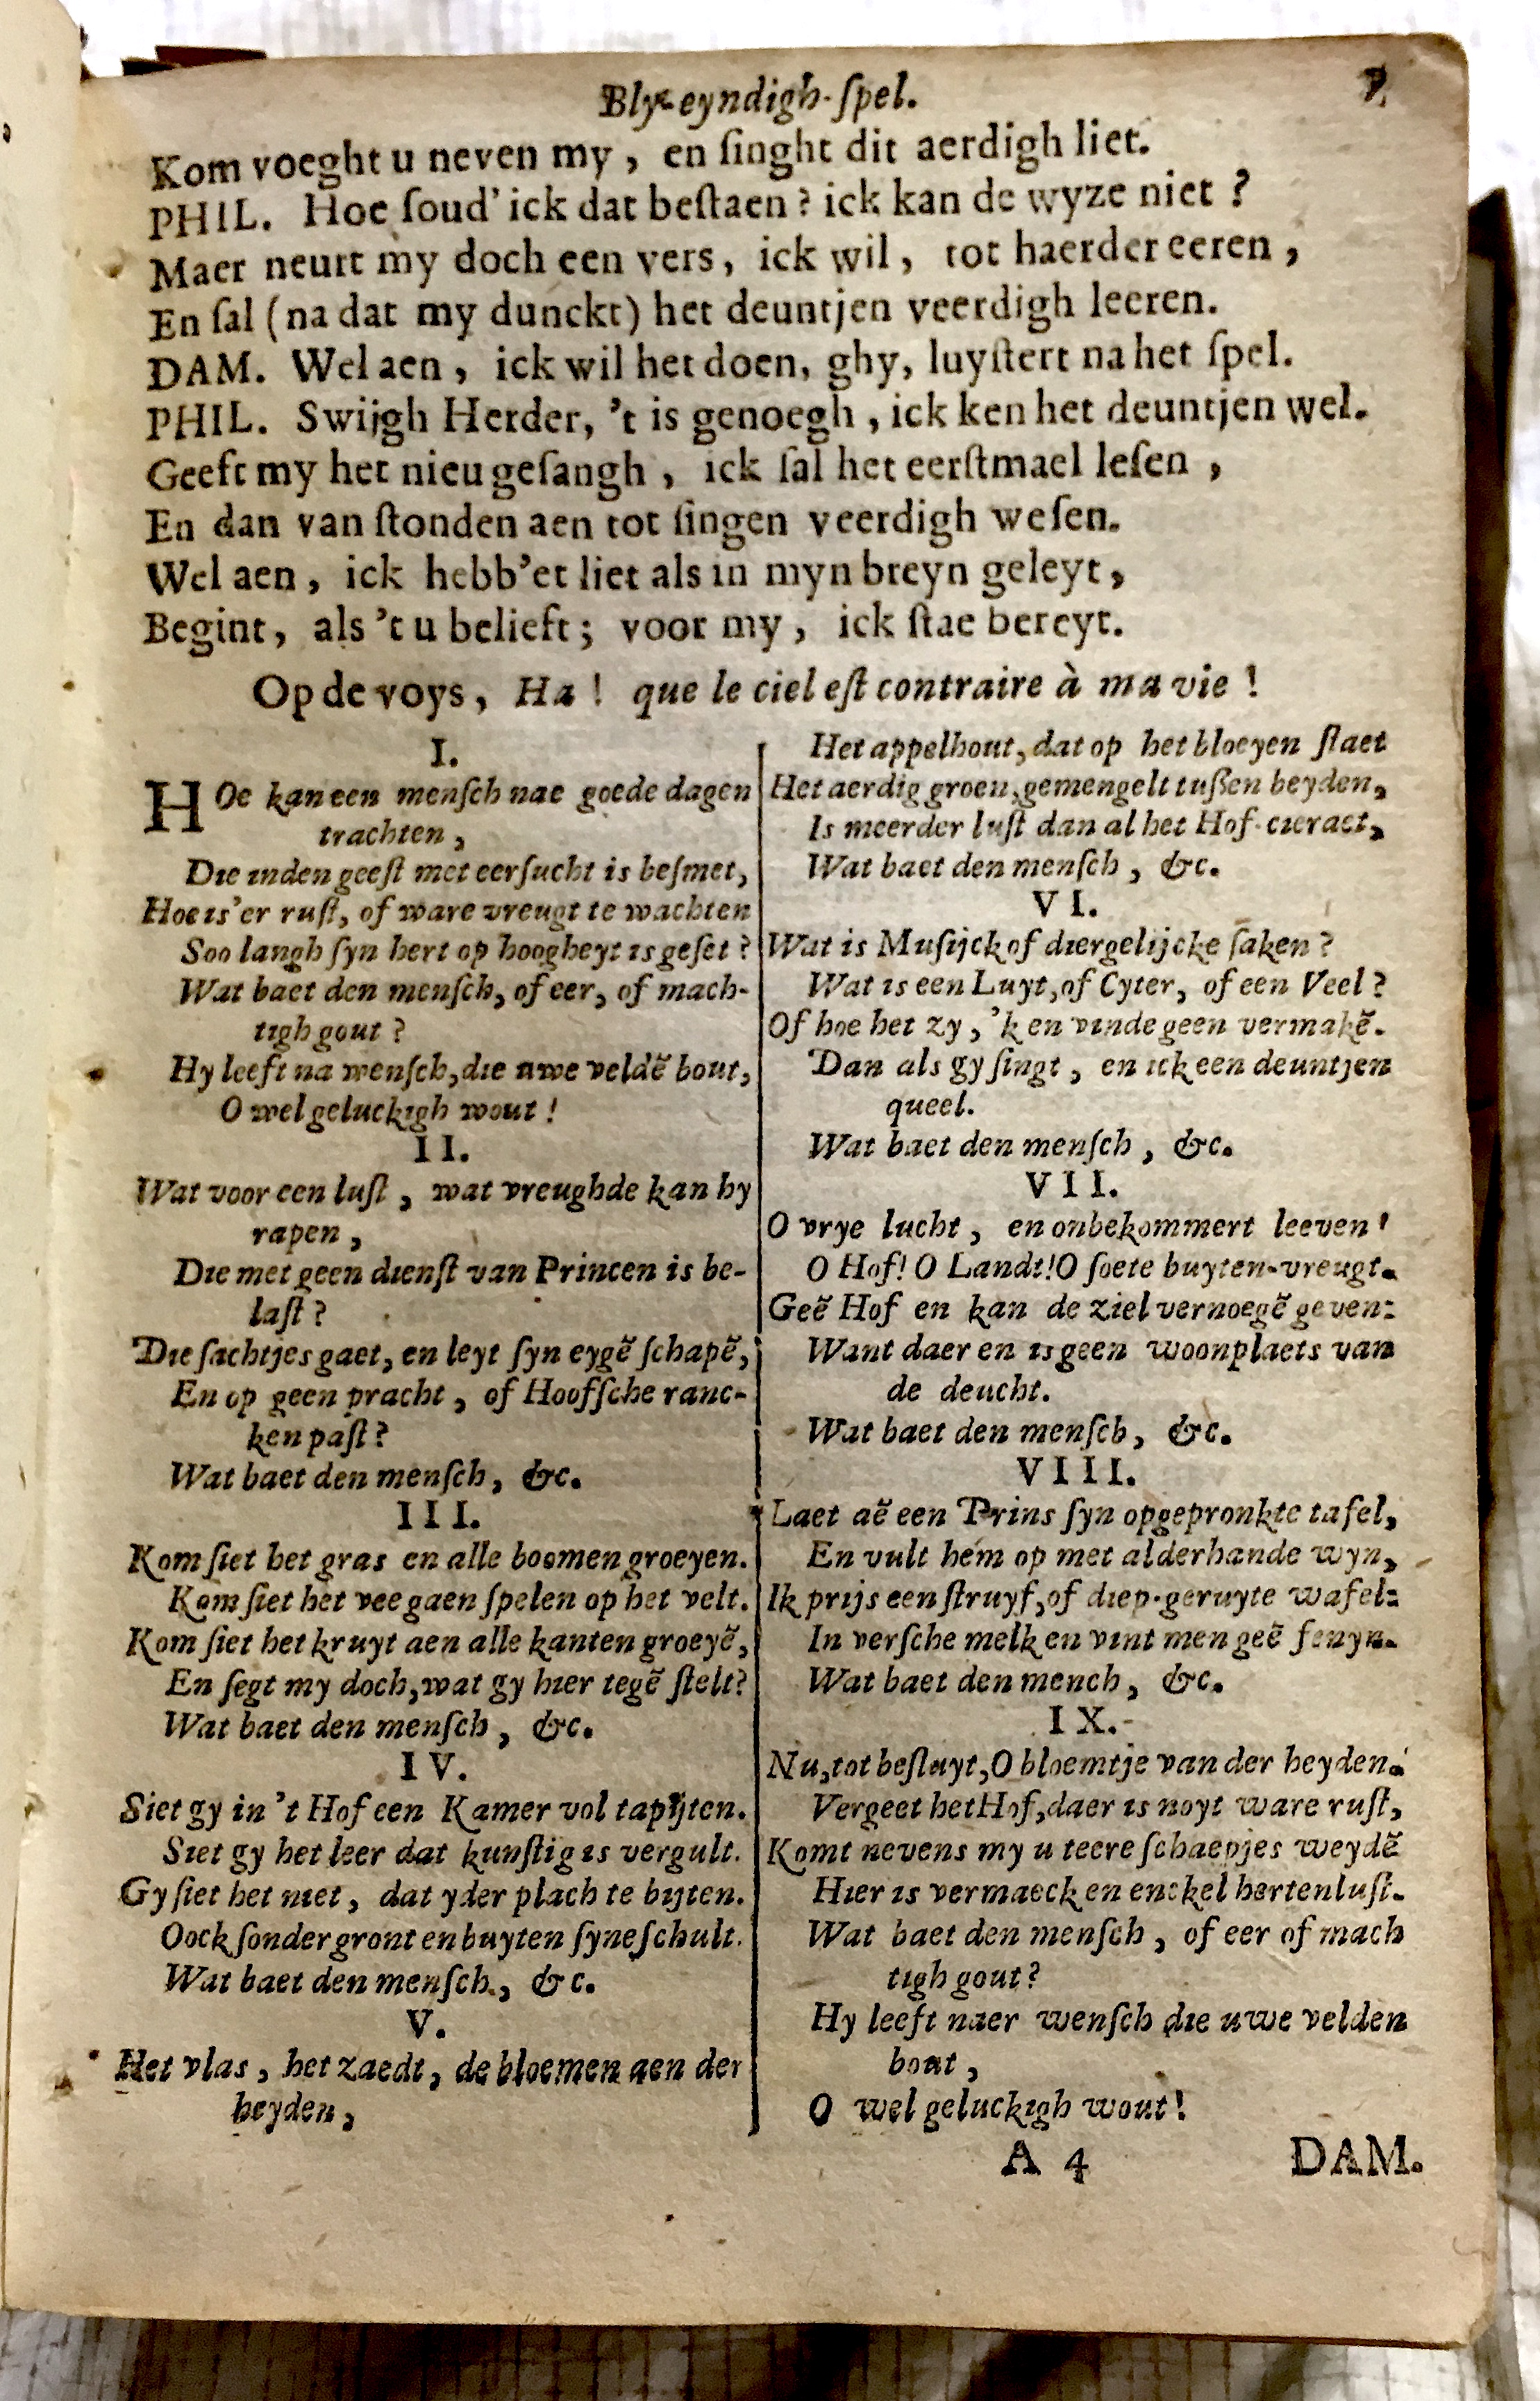 Bly-eyndigh-ſpel. 7
Kom voeght u neven my, en ſinght dit aerdigh liet.
PHIL. Hoe ſoud' ick dat beſtaen? ick kan de wyze niet?
Maer neurt my doch een vers, ick wil, tot haerder eeren,
En ſal (na dat my dunckt) het deuntjen veerdigh leeren.
DAM. Wel aen, ick wil het doen, ghy, luyſtert na het ſpel.
PHIL. Swijgh Herder, 't is genoegh, ick ken het deuntjen wel.
Geeft my het nieu geſangh, ick ſal het eerſtmael leſen,
En dan van ſtonden aen tot ſingen veerdigh weſen.
Wel aen, ick hebb'et liet als in myn breyn geleyt,
Begint, als 't u belieft; voor my, ick ſtae bereyt.
Op de voys, Ha! que le ciel eſt contraire à ma vie!
I.
HOe kan een menſch nae goede dagen
trachten,
Die inden geeſt met eerſucht is beſmet,
Hoe is'er ruſt, of ware vreugt te wachten
Soo langh ſyn hert op hoogheyt is geſet?
Wat baet den menſch, of eer, of mach-
tigh gout?
Hy leeft na wenſch, die uwe veldē bout,
O wel geluckigh wout!
II.
Wat voor een luſt, wat vreughde kan hy
rapen,
Die met geen dienſt van Princen is be-
laſt?
Die ſachtjes gaet, en leyt ſyn eygē ſchapē,
En op geen pracht, of Hoofſche ranc-
ken paſt?
Wat baet den menſch, &c.
III.
Kom ſiet het gras en alle boomen groeyen.
Kom ſiet het vee gaen ſpelen op het velt.
Kom ſiet het kruyt aen alle kanten groeyē,
En ſegt my doch, wat gy hier tegē ſtelt?
Wat baet den menſch, &c.
IV.
Siet gy in 't Hof een Kamer vol tapijten.
Siet gy het leer dat kunſtig is vergult.
Gy ſiet het niet, dat yder plach te bijten.
Oock ſonder gront en buyten ſyne ſchult.
Wat baet den menſch, &c.
V.
Het vlas, het zaedt, de bloemen aen der
heyden,
Het appelhout, dat op het bloeyen ſtaet
Het aerdig groen, gemengelt tußen beyden,
Is meerder luſt dan al het Hof-cieraet,
Wat baet den menſch, &c.
VI.
Wat is Muſijck of diergelijcke ſaken?
Wat is een Luyt, of Cyter, of een Veel?
Of hoe het zy, 'k en vinde geen vermakē.
Dan als gy ſingt, en ick een deuntjen
queel.
Wat baet den menſch, &c.
VII.
O vrye lucht, en onbekommert leeven!
O Hof! O Landt! O ſoete buyten-vreugt.
Geē Hof en kan de ziel vernoegē geven:
Want daer en is geen woonplaets van
de deucht.
Wat baet den menſch, &c.
VIII.
Laet aē een Prins ſyn opgepronkte tafel,
En vult hem op met alderhande wyn,
Ik prijs een ſtruyf, of diep-geruyte wafel:
In verſche melk en vint men geē fenyn.
Wat baet den mench, &c.
IX.
Nu, tot beſluyt, O bloemtje van der heyden!
Vergeet het Hof, daer is noyt ware ruſt,
Komt nevens my u teere ſchaepjes weydē
Hier is vermaeck en enckel hertenluſt.
Wat baet den menſch, of eer of mach
tigh gout?
Hy leeft naer wenſch die uwe velden
bout,
O wel geluckigh wout!
A 4 DAM.